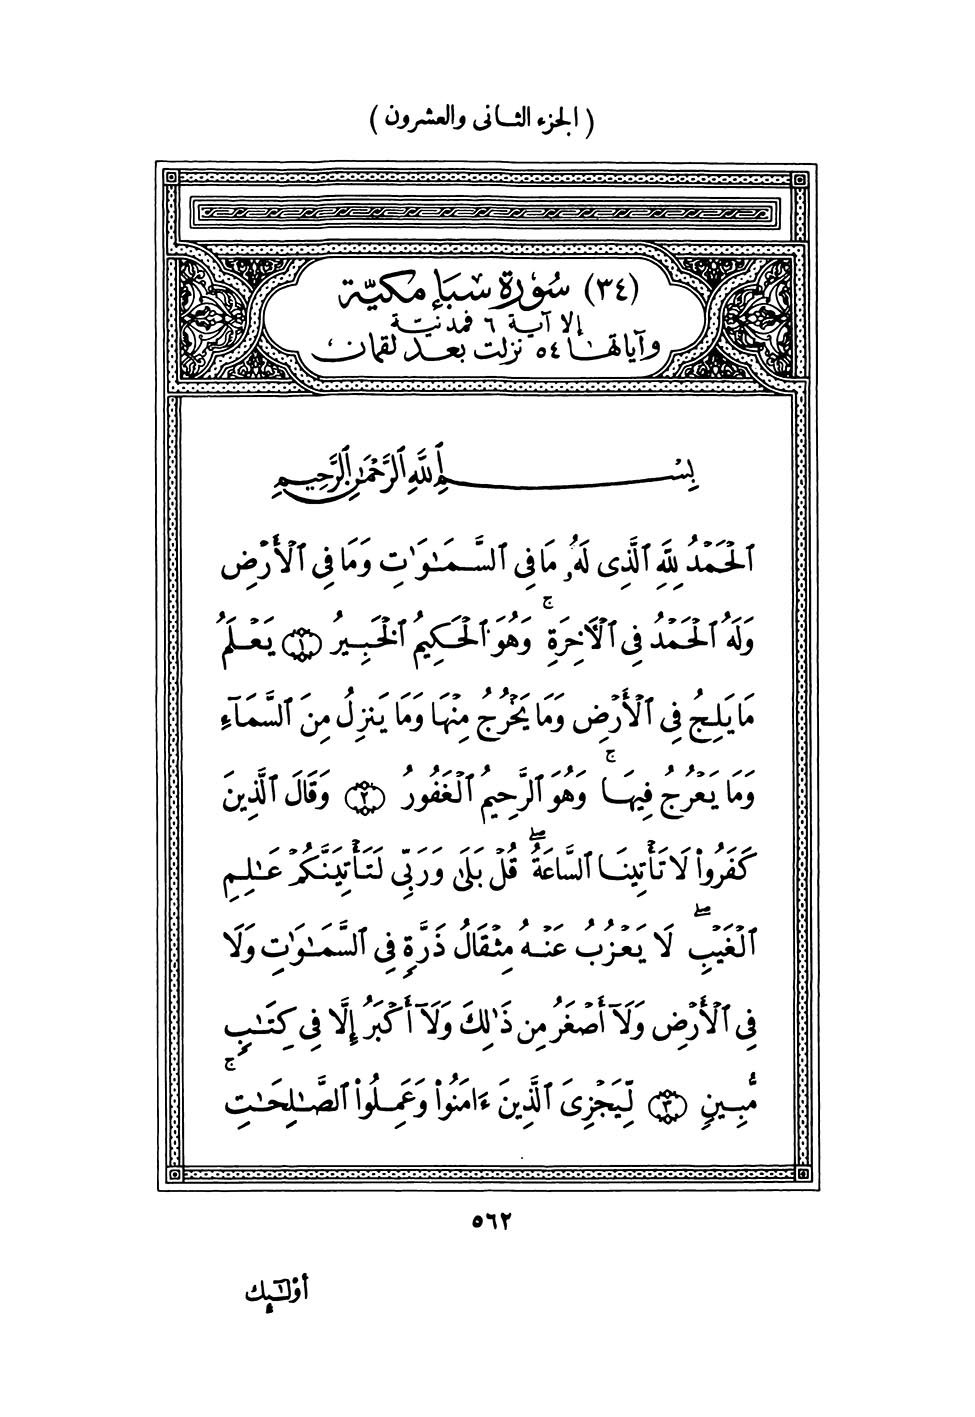 ( الجزء الثانى والعشرون )
(٣٤) سُورَة سَبَإ مكيّة
إلا آية ٦ فمدنيّة
وآياتها ٥٤ نزلت بعد لقمان
بِسْمِ ٱللَّهِ ٱلرَّحْمَٰنِ ٱلرَّحِيمِ
ٱلْحَمْدُ لِلَّهِ ٱلَّذِى لَهُۥ مَا فِى ٱلسَّمَٰوَٰتِ وَمَا فِى ٱلْأَرْضِ
وَلَهُ ٱلْحَمْدُ فِى ٱلْأٓخِرَةِ ۚ وَهُوَ ٱلْحَكِيمُ ٱلْخَبِيرُ ۝١ يَعْلَمُ
مَا يَلِجُ فِى ٱلْأَرْضِ وَمَا يَخْرُجُ مِنْهَا وَمَا يَنزِلُ مِنَ ٱلسَّمَآءِ
وَمَا يَعْرُجُ فِيهَا ۚ وَهُوَ ٱلرَّحِيمُ ٱلْغَفُورُ ۝٢ وَقَالَ ٱلَّذِينَ
كَفَرُوا۟ لَا تَأْتِينَا ٱلسَّاعَةُ ۖ قُلْ بَلَىٰ وَرَبِّى لَتَأْتِيَنَّكُمْ عَٰلِمِ
ٱلْغَيْبِ ۖ لَا يَعْزُبُ عَنْهُ مِثْقَالُ ذَرَّةٍ فِى ٱلسَّمَٰوَٰتِ وَلَا
فِى ٱلْأَرْضِ وَلَآ أَصْغَرُ مِن ذَٰلِكَ وَلَآ أَكْبَرُ إِلَّا فِى كِتَٰبٍ
مُّبِينٍ ۝٣ لِّيَجْزِىَ ٱلَّذِينَ ءَامَنُوا۟ وَعَمِلُوا۟ ٱلصَّٰلِحَٰتِ ۚ
٥٦٢
أُو۟لَٰٓئِكَ